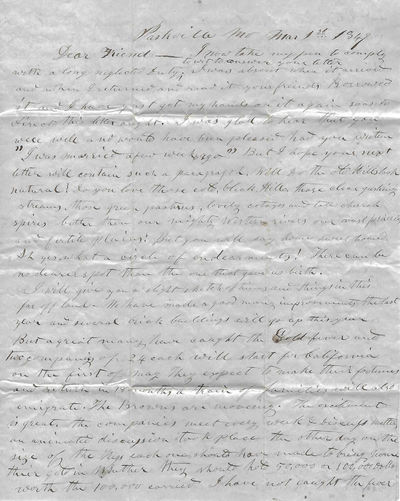 Parkville Mo Mar 1st 1849
Dear Friend — I now take my pen to comply
to wit to answer your letter
with a long neglected duty; I was absent when it arrived
and when I returned and read it your friends borrowed
it and I have just got my hands on it again so as to
direct this letter by it. I was glad to hear that you
were well and would have been pleased had you written
"I was married a few weeks ago" But I hope your next
letter will contain such a paragraph. Will do the old Hills look
natural? do you love those cold, bleak Hills those clear gushing
streams, those green pastures, lovely cottages and tall church
spires better than our mighty Western rivers our vast prairies
and fertile plains? but you will say home sweet home
Oh yes what a circle of endearments! There can be
no dearer spot than the one that gave us birth.
I will give you a slight sketch of times and things in this
far off land. We have made a good many improvements the last
year and several brick buildings will go up this year
But a great many have caught the Gold fever and
two companies of 24 each will start for California
on the first of may they expect to make their fortunes
and return in 18 months a train of families will also
emigrate. The Browns are moveing. The excitement
is great, the companies meet every week & discuss matters
an animated discussion took place the other day on the
size of the kegs each one should have made to bring home
their gold in Whether they should hold 50,000 or 100,000 Dollars
worth the 100,000 carried. I have not caught the fever